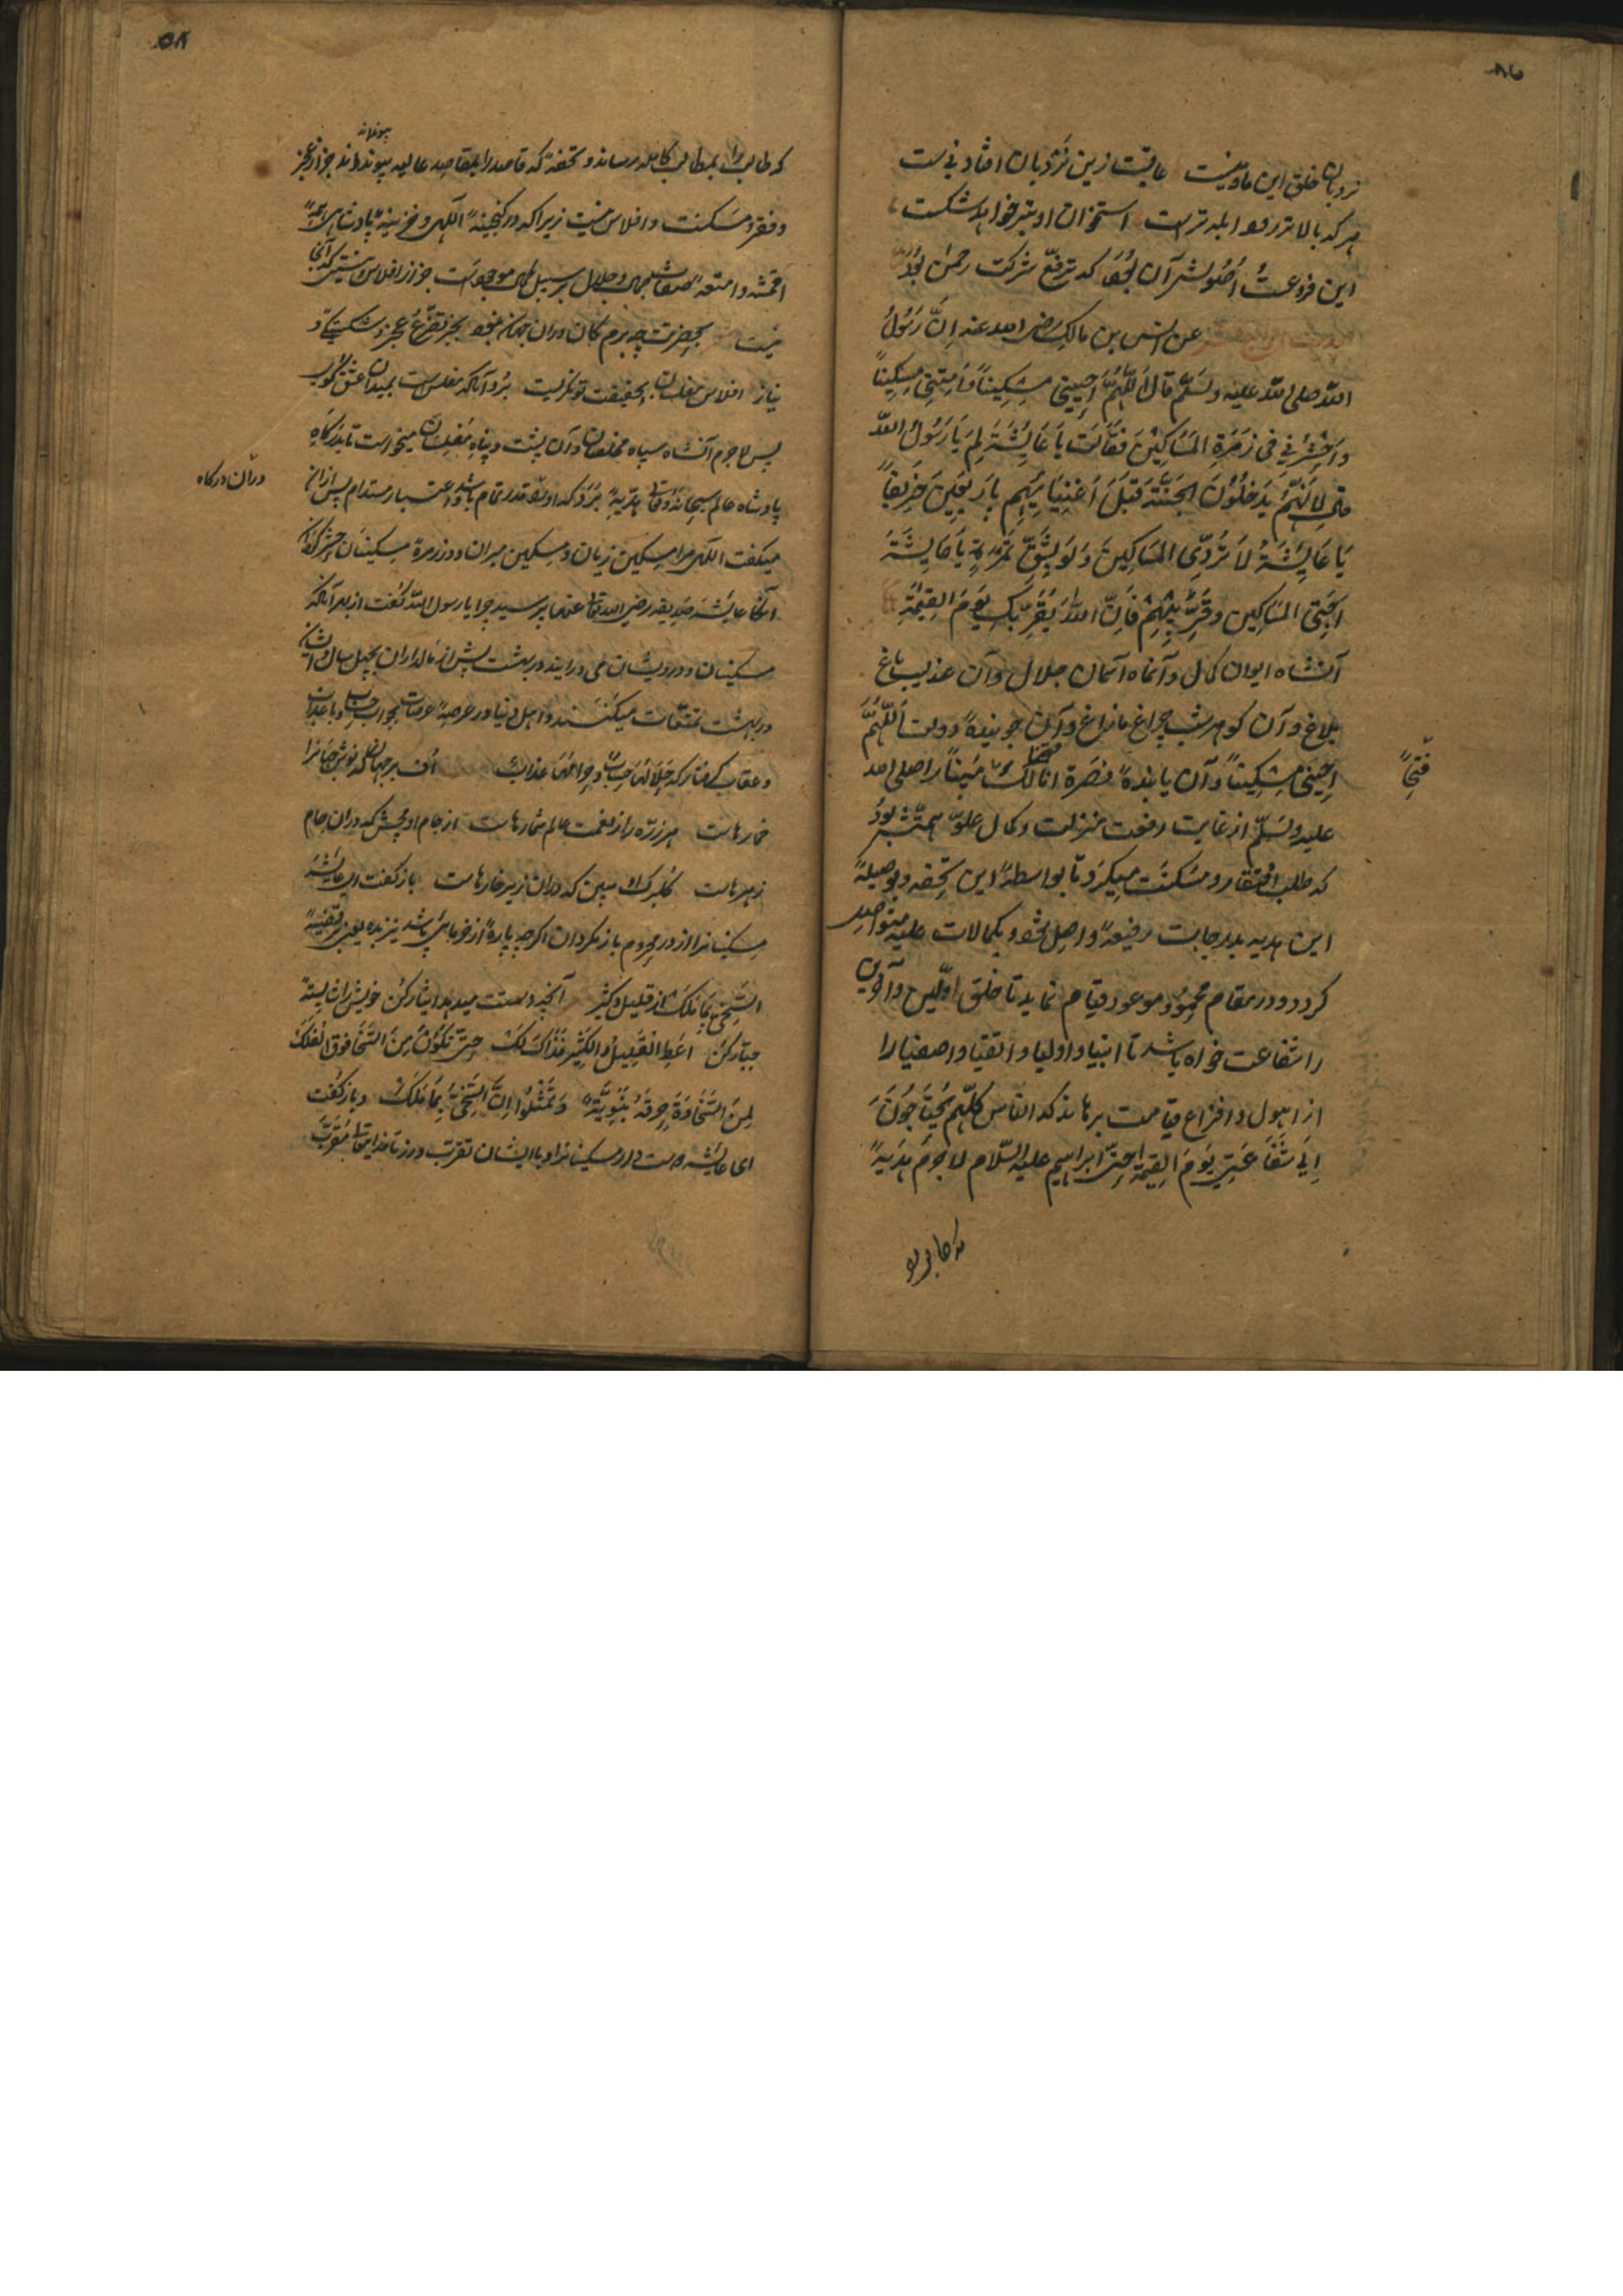 نردبان خلق این ما و منیست عاقبت زین نردبان افتادنی ست
هر که بالاتر رود ابله ترست استخوان او بتر خواهد شکست
این فروعست اصولش آن بود که ترفع شرکت رحمن بود
عن انس بن مالک رضی الله عنه اِنَّ رَسُولُ
الله صلی الله علیه وسلم قال اَللّٰهُمَّ اَحیِینی مِسکِیناً وَاَمِتنِی مِسکِیناً
وَاحشُرنِی فی زمرَةِ المَسَاکِینَ فَقَالَت یَا عَایِشَةَ لِمَ یَا رَسُولُ اللّٰه
قال لِاَنَّهُم یَدخُلُونَ الجَنَّةَ قَبلَ اَغنِیَایِهِم بِاَربَعِینَ خَرِیفاً
یَا عَایِشَةُ لَا تَرُدِّی المَسَاکِینَ وَلَو بِشِقِّ تَمرَةٍ یَا عَایِشَةَ
اَحِبِّی المَسَاکِین وقَرِّبِیهِم فَاِنَّ اللّٰهَ یُقَرِّبُکِ یَومَ القِیٰمَةِ
آنشاه ایوان کمال و آنماه آسمان جلال و آن عندلیب باغ
بلاغ و آن گوهر شب چراغ ما زاغ و آن جویندهٔ دولت اَللّٰهُمَّ
اَحیِنی مِسکِیناً و آن یابندهٔ نصرة انا لک مُبیناً را صلی الله
فَتحاً
علیه وسلم از غایت رفعت منزلت و کمال علوّ همتش بود
که طلب افتقار و مسکنت میکرد تا بواسطهٔ این تحفه و بوسیلهٔ
این هدیه بدرجات رفیعه واصل شود و بکمالات علیه متواصل
گردد و در مقام محمود موعود قیام نماید تا خلق اولین و آخرین
را شفاعت خواه باشد تا انبیا و اولیا و اتقیا و اصفیا را
از اهول و افزاع قیامت برهاند که الناس کلّهم یَحتَاجُونَ
اِلی شَفَاعَتِی یَومَ القِیٰمَة حتّی ابراهیم علیه السّلام لا جرم هدیهٔ
که طالب را بمطالب کامله رساند و تحفهٔ که قاصد را بمقاصد عالیه پیونداند جز از عجز
و فقر و مسکنت و افلاس نیست زیرا که در گنجینهٔ الٰهی و خزینهٔ پادشاهی همهٔ
اقمشه و امتعهٔ صفات جمال و جلال بر سبیل کمال موجودست جز از افلاس و نیستی که آنجا
نیست بحضرتت چه برم کان دران جهان نبود بجز تضرع و عجز و شکستگی و
نیاز افلاس مفلسان بحقیقت توانگریست برد آنکه مفلس است بمیدان عشق گوی
پس لاجرم آنشاه سپاه مخلصان و آن پشت و پناه مفلسان میخواست تا بدرگاه
پادشاه عالم سبحانه و تعالی هدیهٔ برد که او را قدر تمام باشد و اعتبار مستدام پس ازان
دران درگاه
میگفت الٰهی مرا مسکین زیان و مسکین میران و در زمرة مسکینان حشر گردان
آنگاه عایشه صدیقه رضی الله تعالی عنها پرسید چرا یا رسول الله گفت از بهر آنکه
مسکینان و درویشان می درآیند در بهشت پیش از مالداران بچهل سال و ایشان
در بهشت تمتعات میکنند و اهل دنیا در عرصهٔ عرصات بجواب حساب و با عذاب
و عقاب گرفتار که حَلَالُهَا حِسابٌ و حرامُهَا عذابٌ اف بر جهان که نوش جانرا
خمارهاست هر ذرّه را ز نعمت عالم شمارهاست از جام او مچش که دران جام
زهرهاست گلبرگ او مبین که دران زیر خارهاست باز گفت ای عایشه
مسکینانرا از در محروم باز مگردان اگرچه پارهٔ از خرمای باشد نیز بده یعنی بقضیهٔ
السَّخِیّ بِمَا مَلَکَ از قلیل و کثیر آنچه دستت میدهد ایثار کن خویش را شایستهٔ
جبّار کن اَعطِ القَلِیلَ وَالکَثِیرَ فَذَاکَ لَکَ حتّی تَکُونَ مِنَ السَّخَا فوق الفَلَکَ
لِمَنَ السَّخَاوَةَ حِرفَةٌ نَبَوِیَّةٌ وَتَمَثَّلُوا اِنَّ السَّخِیَّ بِمَا مَلَکَ و باز گفت
ای عایشه دوست دار مسکینانرا و با ایشان تقرب ورز تا خدایتعالی مقرّب